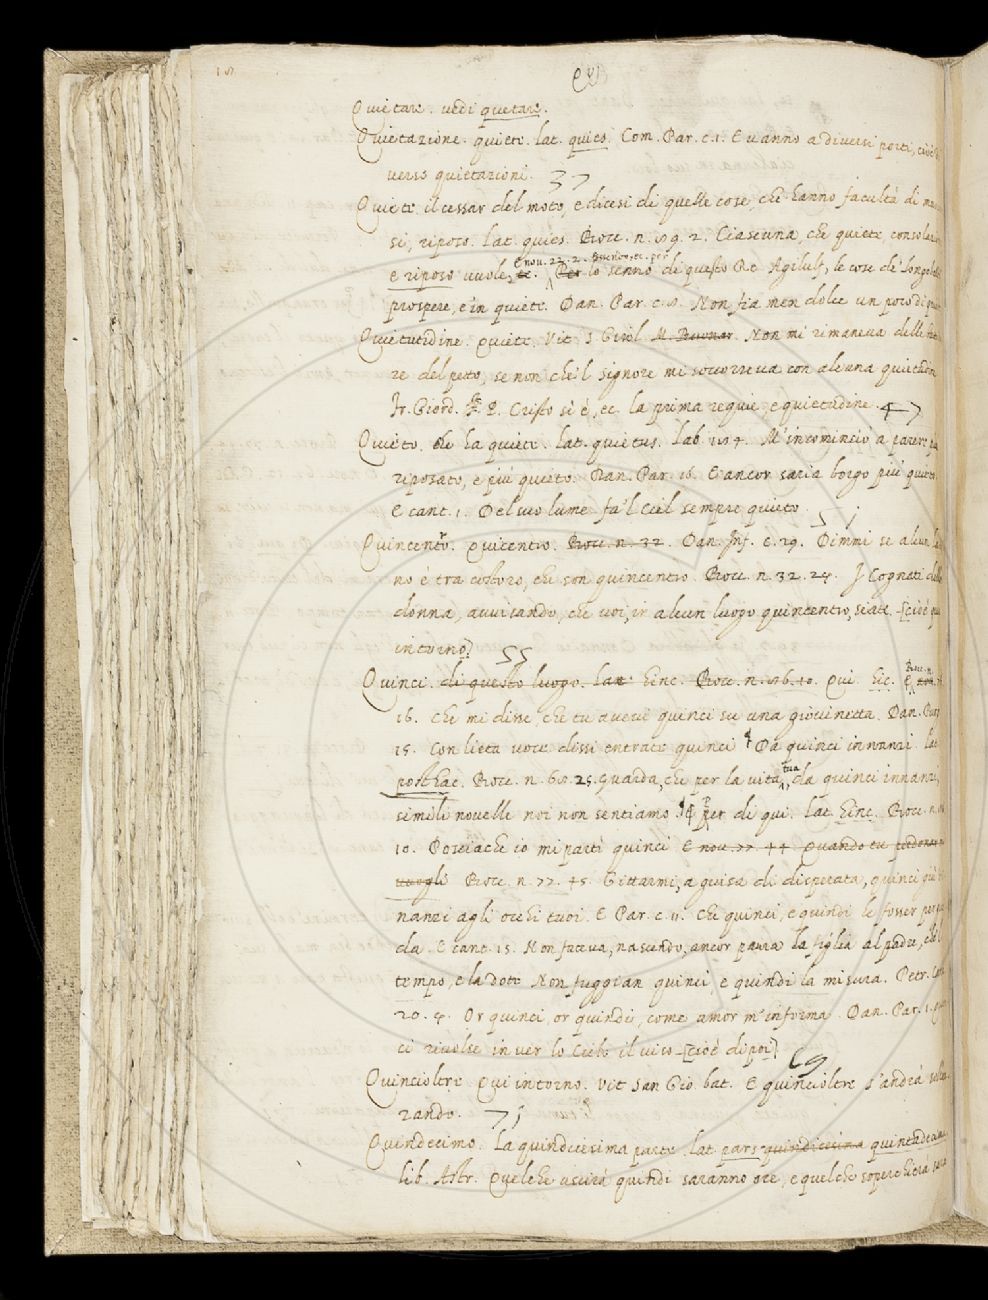 Quietare. vedi quetare.
Quietazione. quiete. lat. quies. Com. Par. c. 1. E vanno a diversi porti, cioè
verso quietazioni. 37
Quiete. il cessar del moto, e dicesi di quelle cose, che hanno facultà di
si, riposo. lat. quies. Bocc. n. 2. Ciascuna, che quiete,
E nov. 22. 2.
e riposo vuole, ec. Per lo senno di questo Re Agilulf, le cose de' Longob
prospere, e in quiete. Dan. Par. c. Non fia men dolce un poco di
Quietudine. Quiete. Vit. S. Girol. M. Buonar. Non mi rimaneva delle
re del petto, se non che'l Signore mi soccorreva con alcuna quietudin
Fr. Giord. P. Cristo si è, ec. la prima requie, e quietudine. 47
Quieto. che ha quiete. lat. quietus. Lab. M'incominciò a parer
riposato, e più quieto. Dan. Par. 16. E ancor saria borgo più quieto.
E cant. 1. Del suo lume fa'l Ciel sempre quieto. 5 j
Quincentro. Quicentro. Bocc. n. 32. Dan. Inf. c. 29. Dimmi se alcun
no è tra costoro, che son quincentro. Bocc. n. 32. 24. I Cognati della
donna, avvisando, che voi, in alcun luogo quincentro, siate. [cioè
intorno] 55
Quinci. di questo luogo. lat. hinc. Bocc. n. Qui. hic. E nov.
Bocc. n.
16. Che mi disse, che tu avevi quinci su una giovinetta. Dan. Purg.
15. Con lieta voce dissi entrate quinci. Da quinci innanzi. lat.
posthac. Bocc. n. 25. Guarda, che per la vita tua, da quinci innanzi,
simili novelle noi non sentiamo. Per di qui. lat. hinc. Bocc. n.
10. Posciache io mi partì quinci. E nov. 77. 44. Quando tu
vuogli Bocc. n. 77. 45. Gittarmi, a guisa di disperata, quinci giù
nanzi agli occhi tuoi. E Par. c. 11. Che quinci, e quindi le fosser per
da. E cant. 15. Non faceva, nascendo, ancor paura la figlia al padre, che'l
tempo, e la dote Non fuggian quinci, e quindi la misura. Petr.
20. 4. Or quinci, or quindi, come amor m'informa. Dan. Par. 1.
ci rivolse in ver lo Cielo il viso [cioè dipoi] 69
Quincioltre. Qui intorno. Vit. San Gio. bat. E quincioltre s'andrà
zando. 7 j
Quindecimo. La quindicesima parte. lat. pars quindicesima
lib. Astr. Quelche uscirà quindi saranno ore, e quelche soperchierà